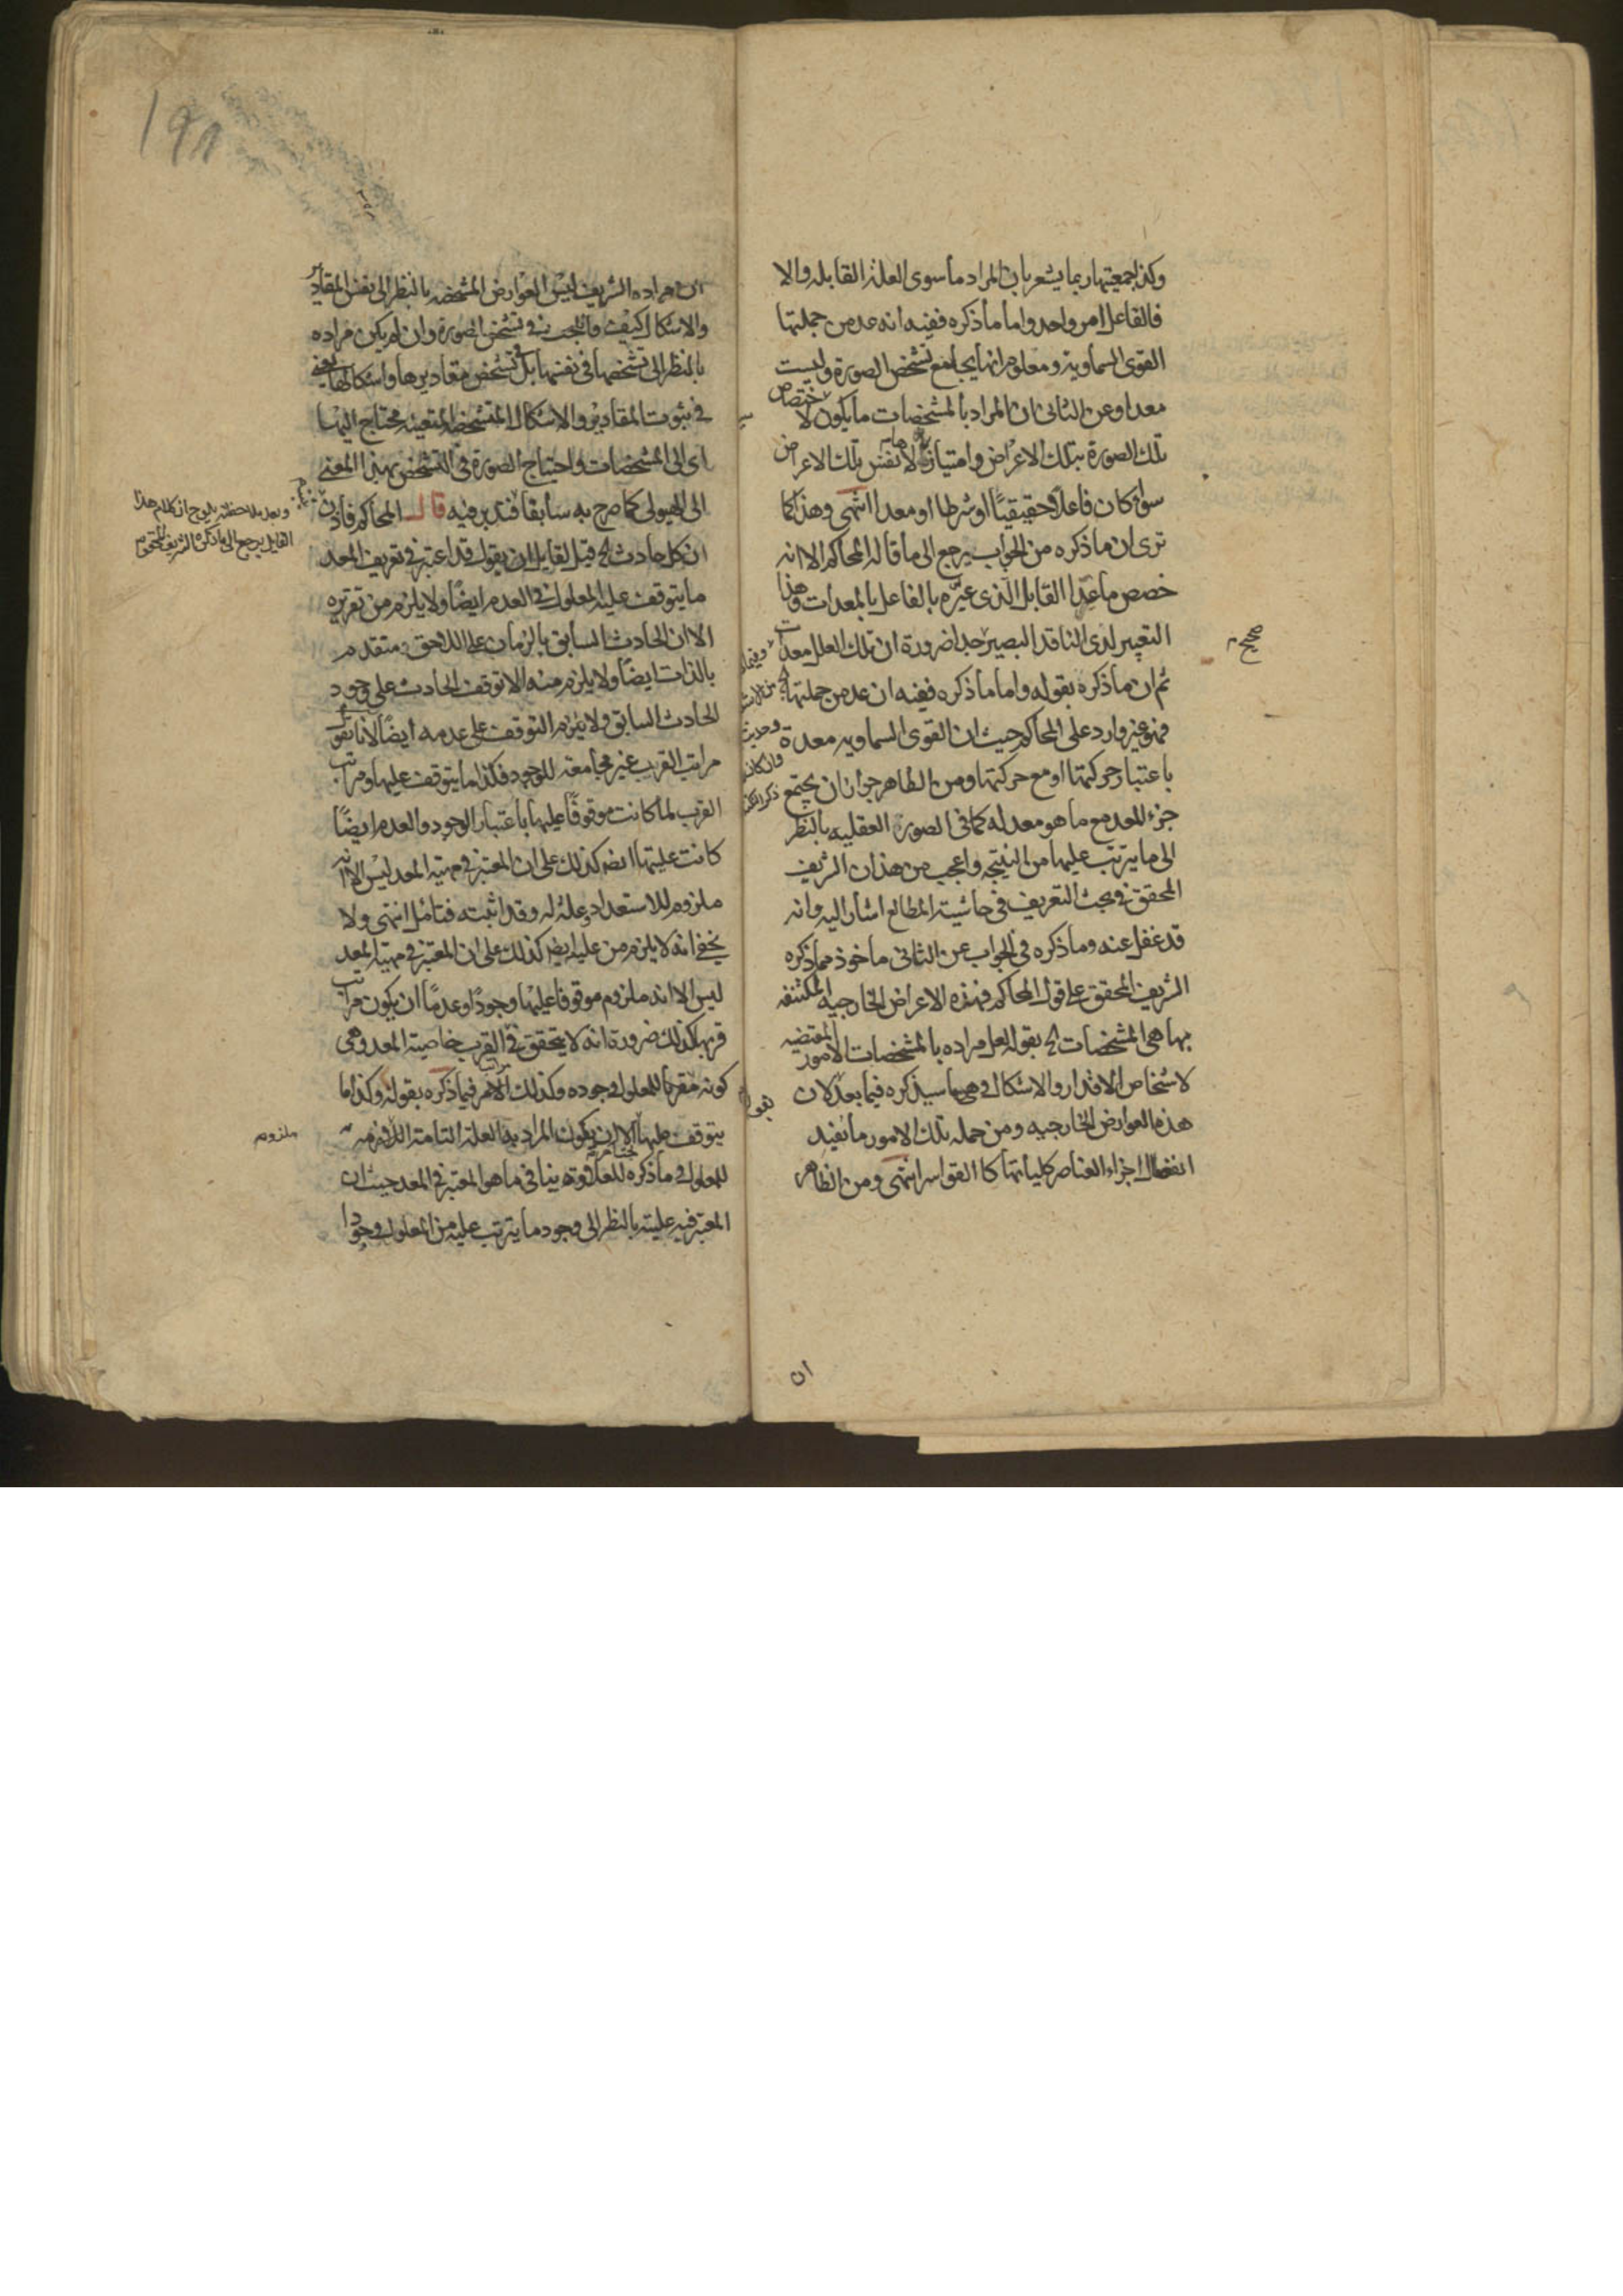 وكذا جمعيتها ربما يشعر بان المراد ما سوى العلة القابله والا
فالفاعل امر واحد واما ما ذكره ففيه انه عد من جملتها
القوى السماوية ومعلوم انها يجامع تشخص الصورة وليست
معدا وعن الثانى ان المراد بالمشخصات ما يكون لاختصاص
تلك الصورة بتلك الاعراض وامتيازها به لا نفس تلك الاعراض
سواء كان فاعلا حقيقيًا او شرطا او معدا انتهى وهذا كما
ترى ان ما ذكره من الجواب يرجع الى ما قاله المحاكم الا انه
خصص ما عدا القابل الذى عبّره بالفاعل بالمعدات وهذا
التعبير لدى الناقد البصير جدا ضرورة ان تلك العلل معدات
ثم ان ما ذكره بقوله واما ما ذكره ففيه ان عد من جملتها
فهو غير وارد على المحاكم حيث ان القوى السماويه معدة
باعتبار حركتها او مع حركتها ومن الظاهر جواز ان يجتمع
جزء المعد مع ما هو معد له كما فى الصورة العقليه بالنظر
الى ما يترتب عليها من النتيجه واعجب من هذا ان الشريف
المحقق فى بحث التعريف فى حاشية المطالع اشار اليه وانه
قد غفل عنه وما ذكره فى الجواب عن الثانى ماخوذ مما ذكره
الشريف المحقق على قول المحاكم فهذه الاعراض الخارجيه المكتنفه
بها هى المشخصات الخ بقوله لعل مراده بالمشخصات الامور المقتضيه
لاشخاص الاقدار والاشكال وهى ما سيذكره فيما بعد لان
هذه العوارض الخارجيه ومن جمله تلك الامور ما يفيد
انفصال اجزاء العناصر كلياتها كالقواسر انتهى ومن الظاهر
ان
صحيح
ان مراده الشريف ليس العوارض المشخصه بالنظر الى نفس المقادير
والاشكال كيف والبحث فى تشخص الصورة وان لم يكن مراده
بالنظر الى تشخصها فى نفسها بل فى تشخص مقاديرها واشكالها يعنى
فى ثبوت المقادير والاشكال المتشخصه المتعينه محتاج اليها
اى الى المشخصات واحتياج الصورة فى التشخص بهذا المعنى
الى الهيولى كما صرح به سابقا فتدبر فيه قال المحاكم فاذن
ان كل حادث الخ قيل لقايل ان يقول قد اعتبر فى تعريف المعد
ما يتوقف عليه المعلول فى العدم ايضًا ولا يلزم من تقريره
الا ان الحادث السابق بالزمان على اللاحق متقدم
بالذات ايضًا ولا يلزم منه الا توقف الحادث على وجود
الحادث السابق ولا يلزم التوقف على عدمه ايضًا لانا نقول
مراتب القرب غير مجامعة للوجود فكذا ما يتوقف عليها ومراتب
القرب لما كانت موقوفًا عليها باعتبار الوجود والعدم ايضًا
كانت عليتها ايضا كذلك على ان المعتبر فى مهية المعد ليس الا انه
ملزوم للاستعداد وعلة له وقد اثبته فتامل انتهى ولا
يخفى انه لا يلزم من عليه ايضا كذلك على ان المعتبر فى مهية المعد
ليس الا انه ملزوم موقوفا عليها وجودًا وعدمًا ان يكون مراتب
قربها كذلك ضرورة انه لا يتحقق فى القرب خاصية المعد وهى
كونه مقربا للمعلول وجوده وكذلك الامر فيما ذكره بقوله وكذا ما
يتوقف عليها الا ان يكون المراد به العلة التامة اللازمة
للمعلول ما ذكره للعلة ينافى ما هو المعتبر فى المعد حيث ان
المعتبر فيه عليته بالنظر الى وجود ما يترتب عليه من المعلول وجودا
وبعد ملاحظته يلوح ان كلام هذا
القايل يرجع الى ما ذكره الشريف المحقق
ملزوم